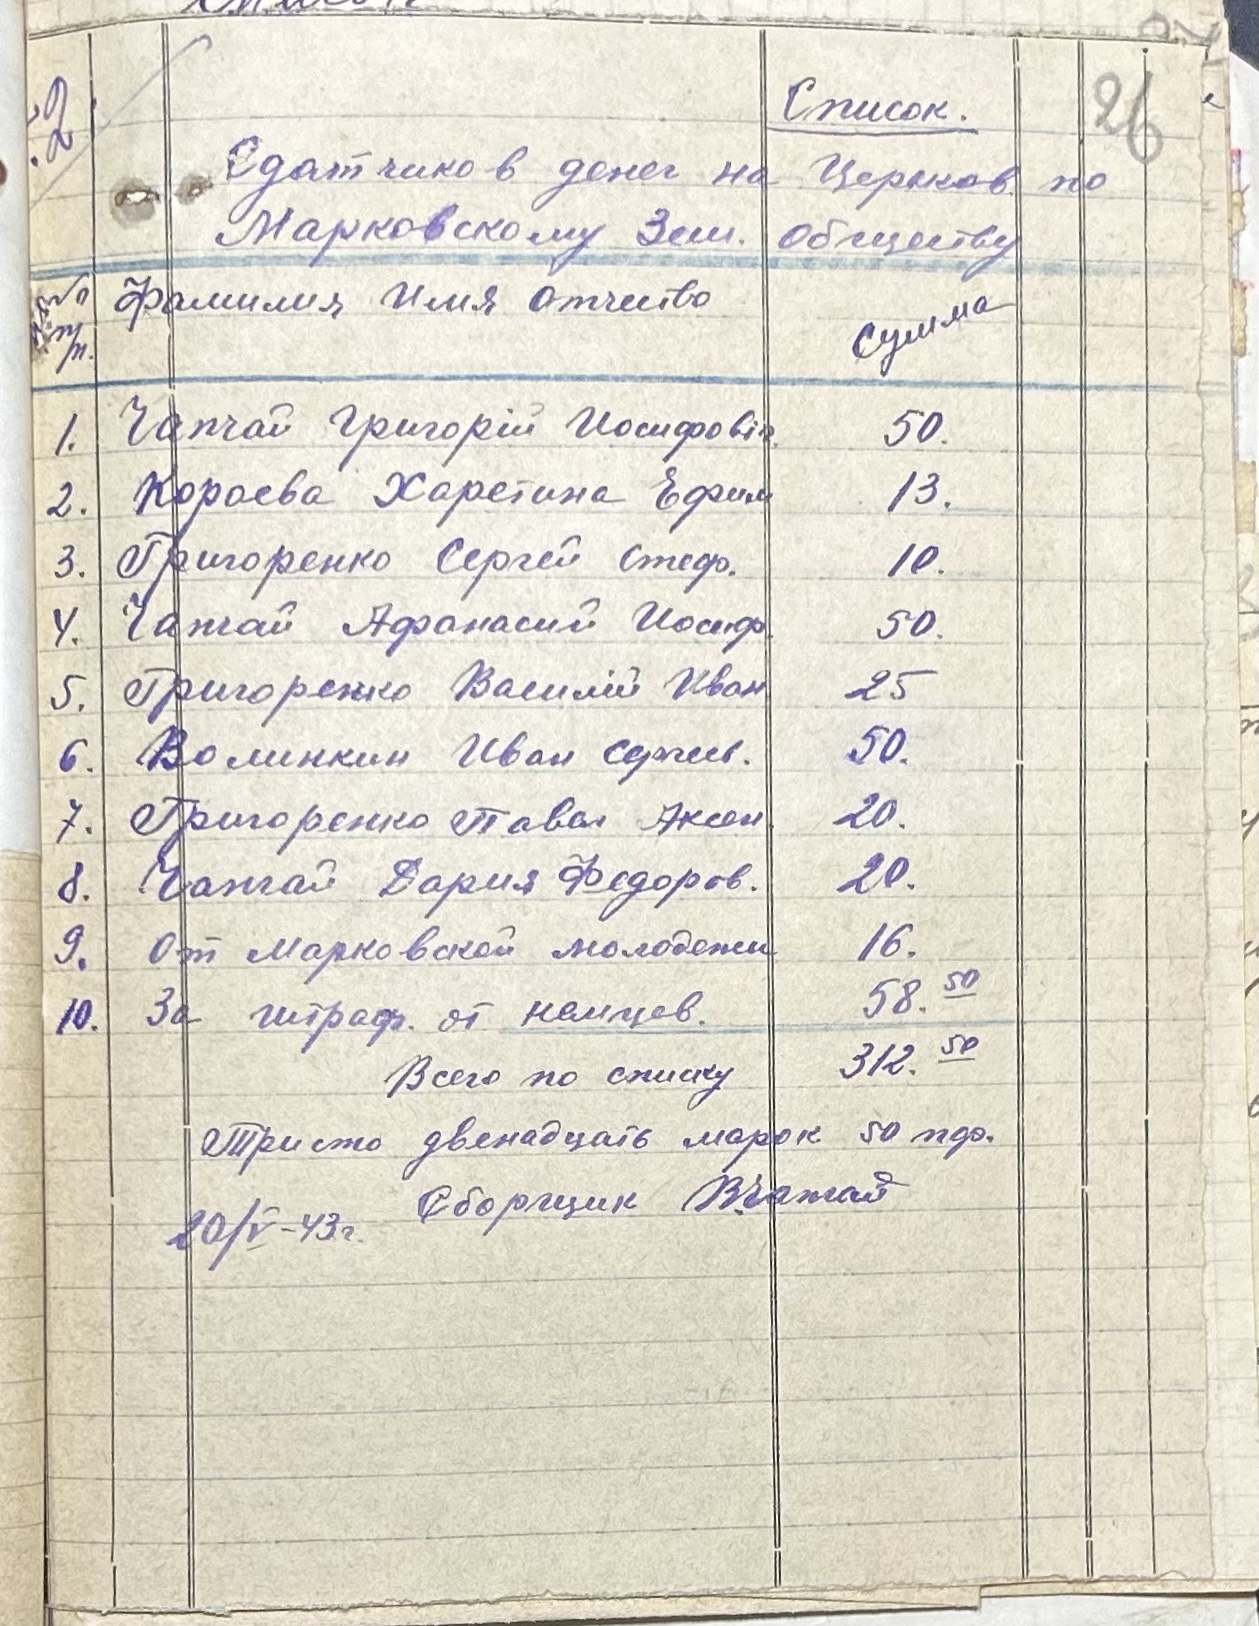 26
Список.
Сдатчиков денег на Церьков по
Марковскому Зем. обществу
№ п/п. Фамилия Имя Отчество Сумма
1. Чапчай Григорій Иосифовіч. 50.
2. Кораева Харетина Ефим 13.
3. Григоренко Сергей Стеф. 10.
4. Чапчай Афанасий Иосиф. 50.
5. Григоренко Василій Иван 25
6. Волинкин Иван Сергеев. 50.
7. Григоренко Павел Аксен. 20.
8. Чапчай Дария Федоров. 20.
9. От Марковской молодежи 16.
10. За штраф. от немцев. 58. 50
Всего по списку 312. 50
Тристо двенадцать марок 50 пф.
Сборщик ВЧапчай
20/V-43г.